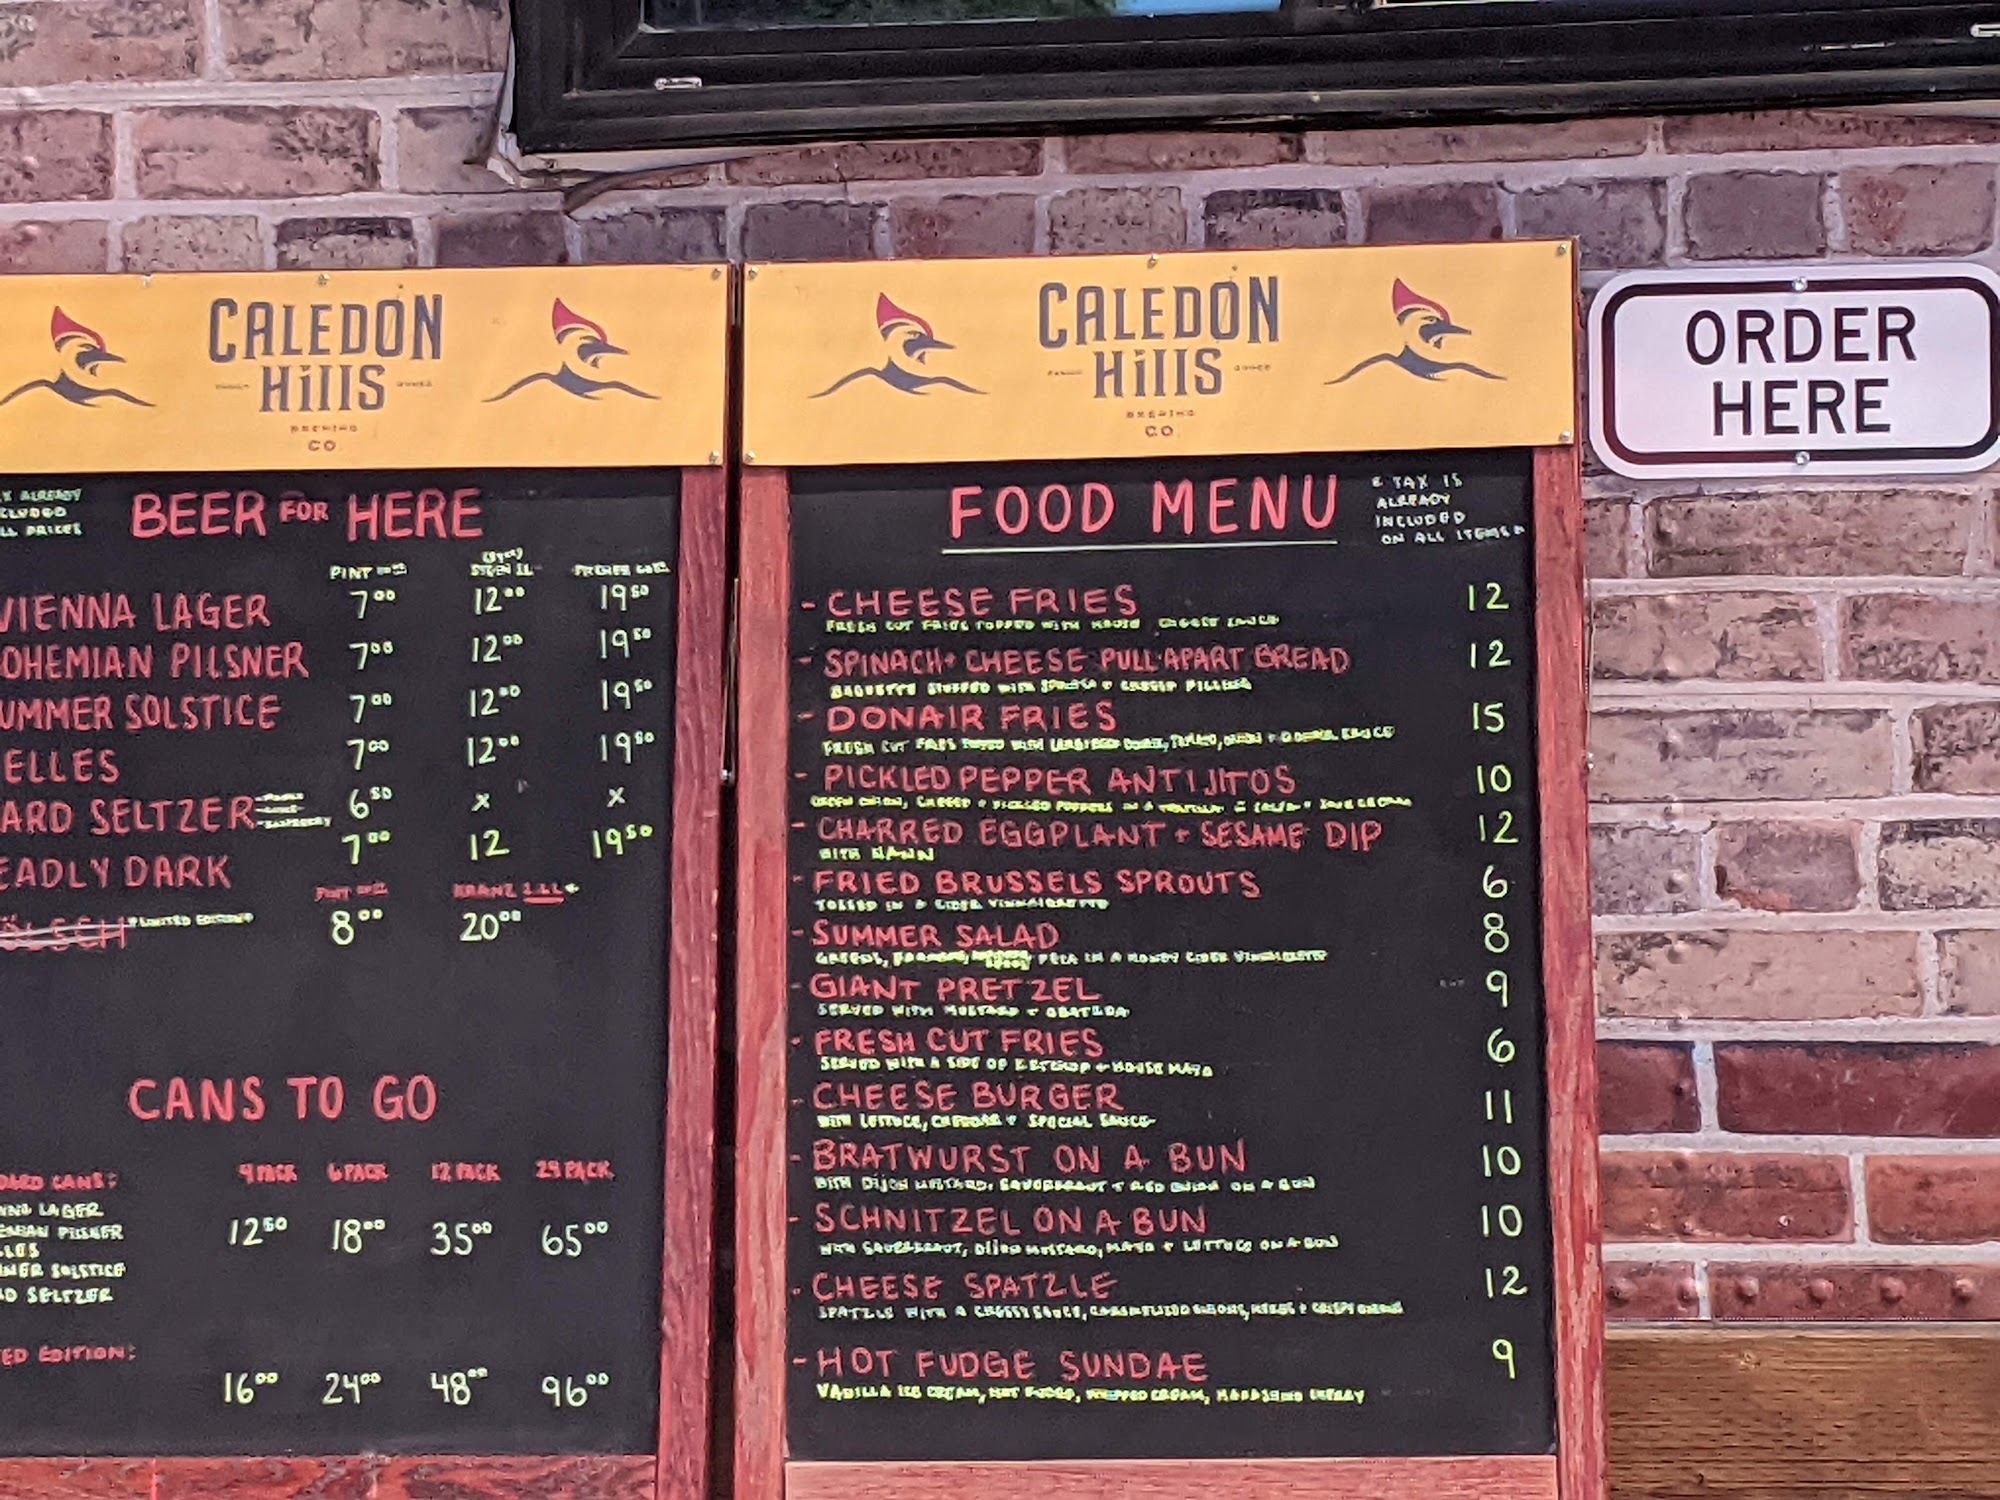 CALEDON
HillS
BREWING
CO.
X ALREADY
CLUDED
LL PRICES
BEER FOR HERE
PINT
STEIN 1L
PITCHER
VIENNA LAGER 7.00 12.00 19.50
OHEMIAN PILSNER 7.00 12.00 19.50
UMMER SOLSTICE 7.00 12.00 19.50
ELLES 7.00 12.00 19.50
ARD SELTZER 6.50 X X
EADLY DARK 7.00 12 19.50
PINT KRANZ
*LIMITED EDITION* 8.00 20.00
CANS TO GO
4 PACK 6 PACK 12 PACK 24 PACK
CANS:
NNA LAGER
EMIAN PILSNER 12.50 18.00 35.00 65.00
LLES
MER SOLSTICE
D SELTZER
ED EDITION:
16.00 24.00 48.00 96.00
CALEDON
HillS
BREWING
CO.
FOOD MENU
* TAX IS
ALREADY
INCLUDED
ON ALL ITEMS *
- CHEESE FRIES 12
FRESH CUT FRIES TOPPED WITH HOUSE CHEESE SAUCE
- SPINACH + CHEESE PULL-APART BREAD 12
BAGUETTE STUFFED WITH SPINACH + CHEESE FILLING
- DONAIR FRIES 15
FRESH CUT FRIES TOPPED WITH TOMATO, ONION + SAUCE
- PICKLED PEPPER ANTIJITOS 10
GREEN ONION, CHEESE + PICKLED PEPPERS IN A TORTILLA SALSA + SOUR CREAM
- CHARRED EGGPLANT + SESAME DIP 12
WITH NAAN
- FRIED BRUSSELS SPROUTS 6
TOSSED IN A CIDER VINNAIGRETTE
- SUMMER SALAD 8
GREENS, FETA IN A HONEY CIDER VINNAIGRETTE
- GIANT PRETZEL 9
SERVED WITH MUSTARD + OBATZDA
- FRESH CUT FRIES 6
SERVED WITH A SIDE OF KETCHUP + HOUSE MAYO
- CHEESE BURGER 11
WITH LETTUCE, CHEDDAR + SPECIAL SAUCE
- BRATWURST ON A BUN 10
WITH DIJON MUSTARD, SAUERKRAUT + RED ONION ON A BUN
- SCHNITZEL ON A BUN 10
WITH SAUERKRAUT, DIJON MUSTARD, MAYO + LETTUCE ON A BUN
- CHEESE SPATZLE 12
SPATZLE WITH A CHEESE SAUCE, CARAMELIZED ONIONS, HERBS + CRISPY ONIONS
- HOT FUDGE SUNDAE 9
VANILLA ICE CREAM, HOT FUDGE, WHIPPED CREAM, MARASCHINO CHERRY
ORDER
HERE